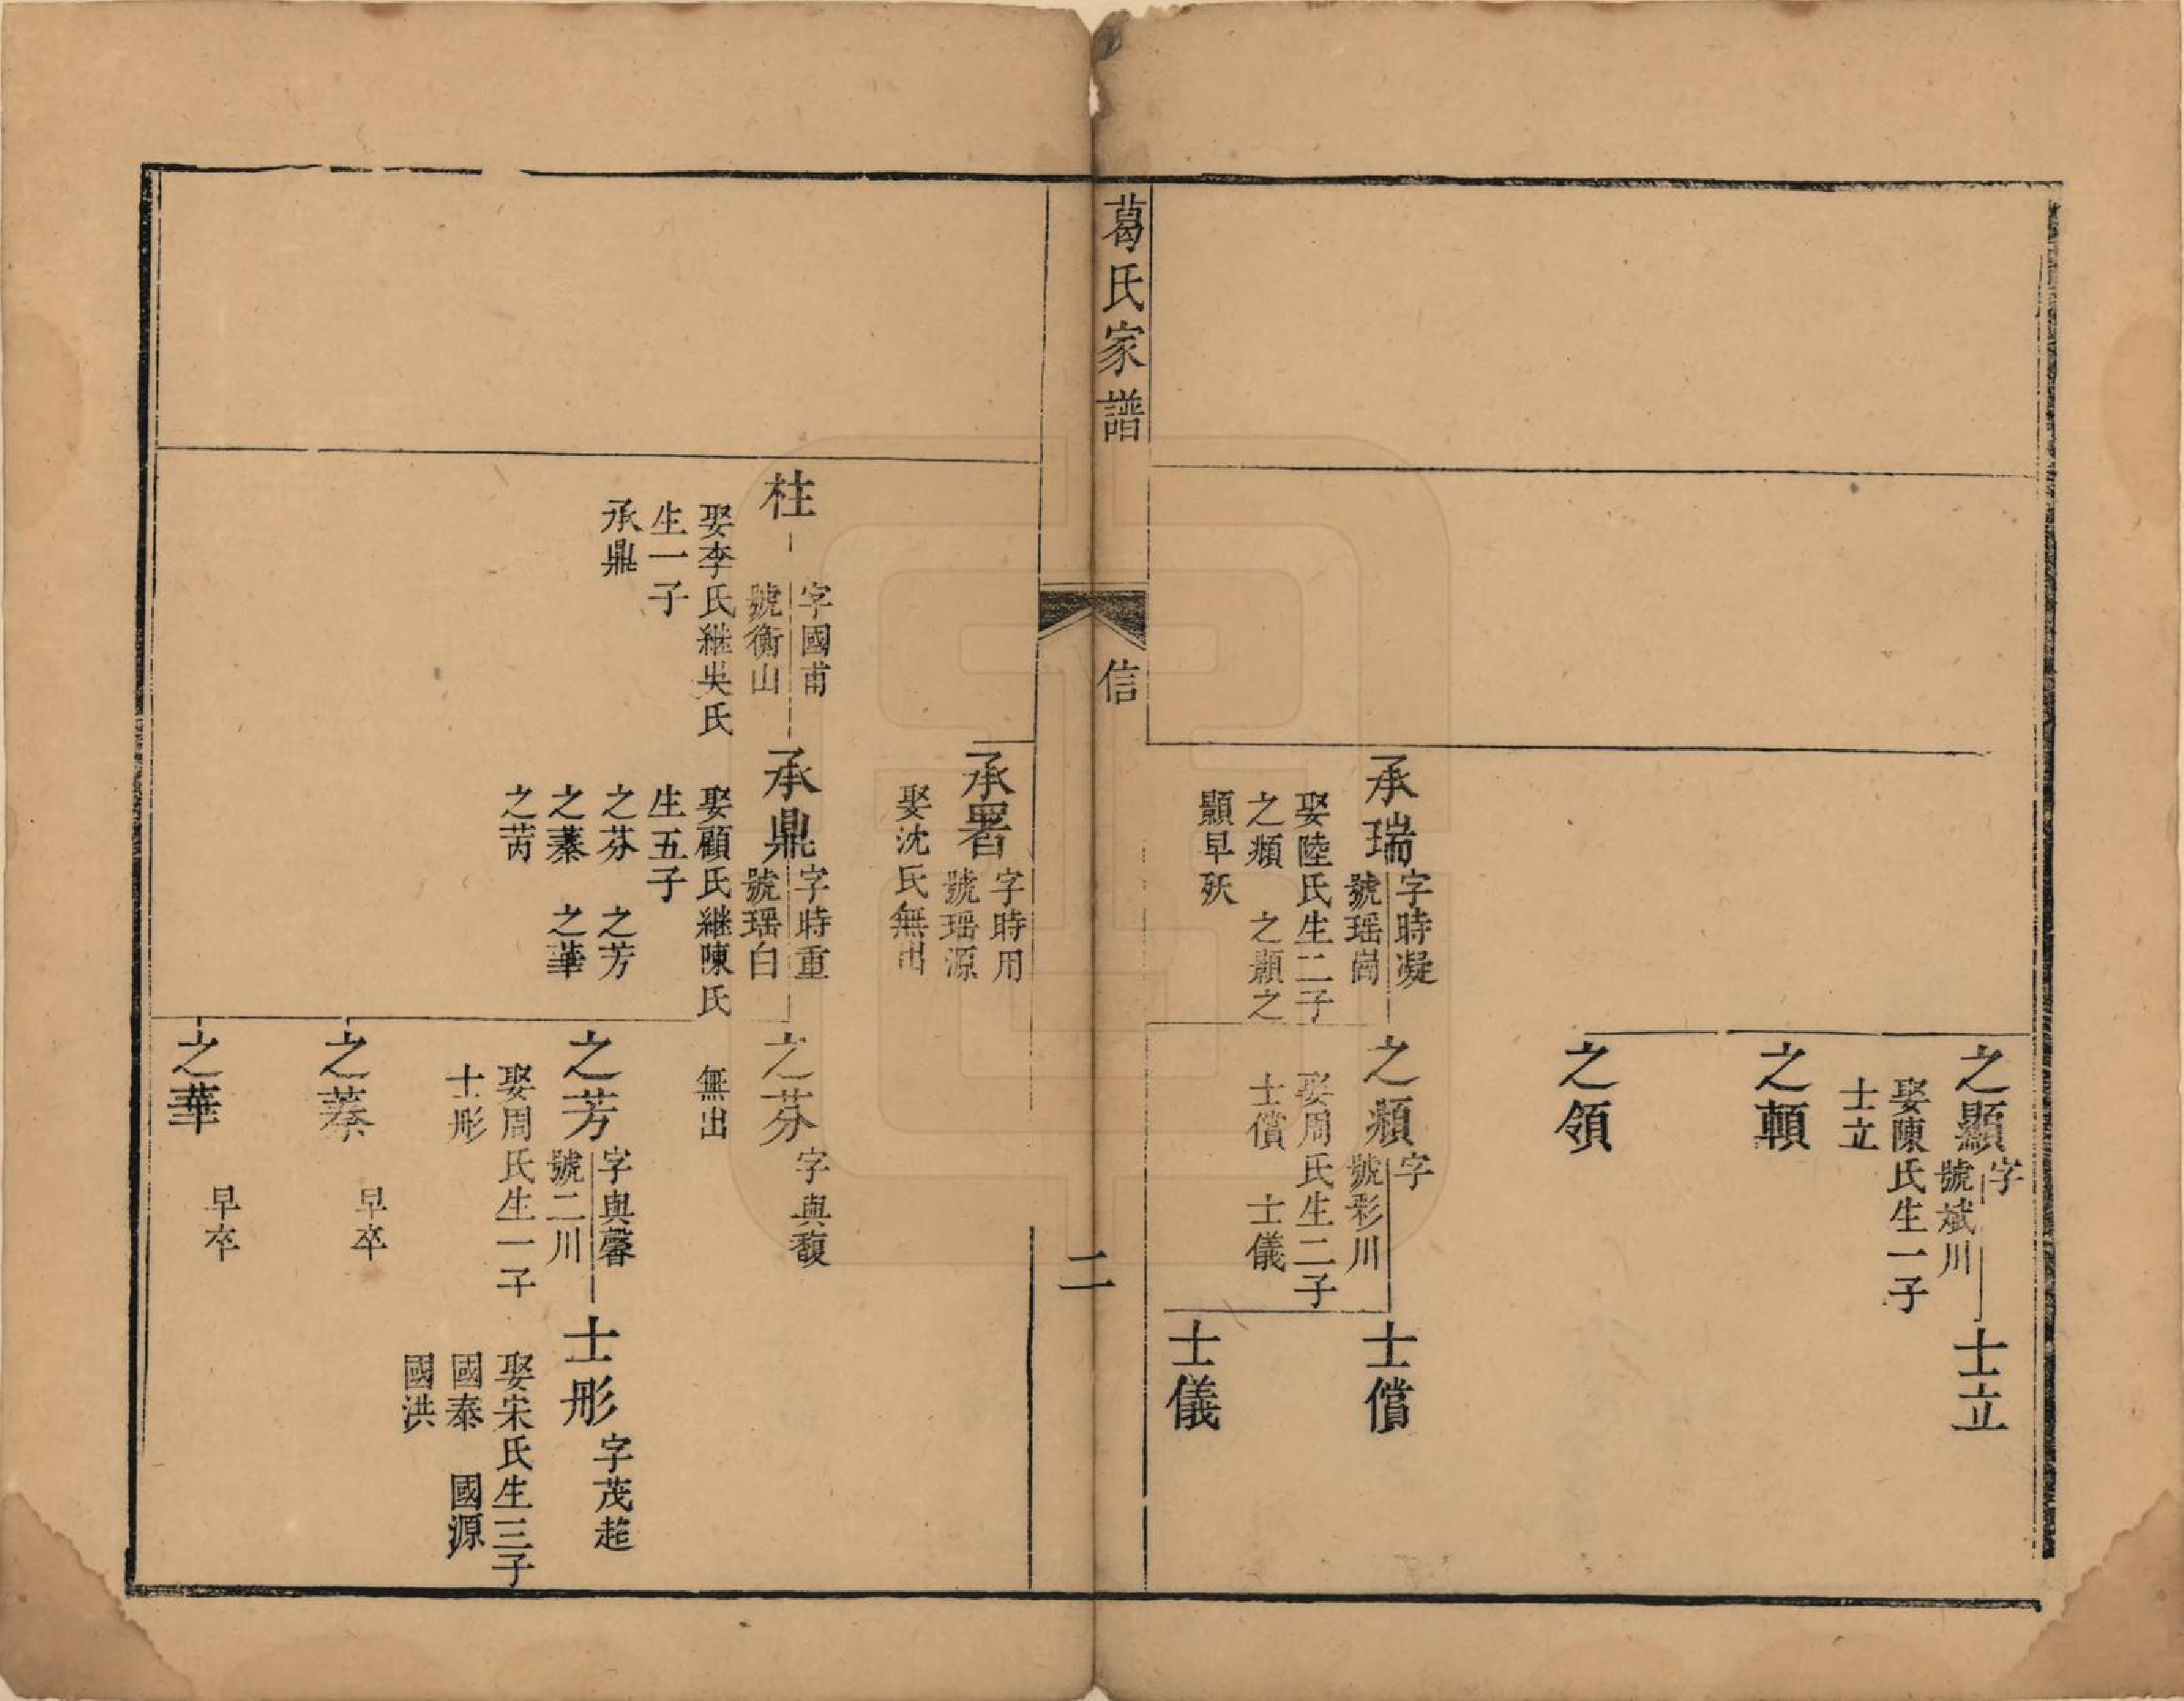 之顯
字
號斌川
娶陳氏生一子
士立
士立
之頼
之領
承瑞
字時凝
號瑶崗
娶陸氏生二子
之頻 之顥之
顥早殀
之頻
字
號彩川
娶周氏生二子
士償 士儀
士償
士儀
葛氏家譜
信
二
承署
字時用
號瑶源
娶沈氏無出
柱
字國甫
號衡山
娶李氏継吳氏
生一子
承鼎
承鼎
字時重
號瑶白
娶顧氏継陳氏
生五子
之芬 之芳
之蓁 之華
之苪
之芬
字與馥
無出
之芳
字與馨
號二川
娶周氏生一子
士彤
士彤
字茂起
娶宋氏生三子
國泰 國源
國洪
之蓁
早卒
之華
早卒